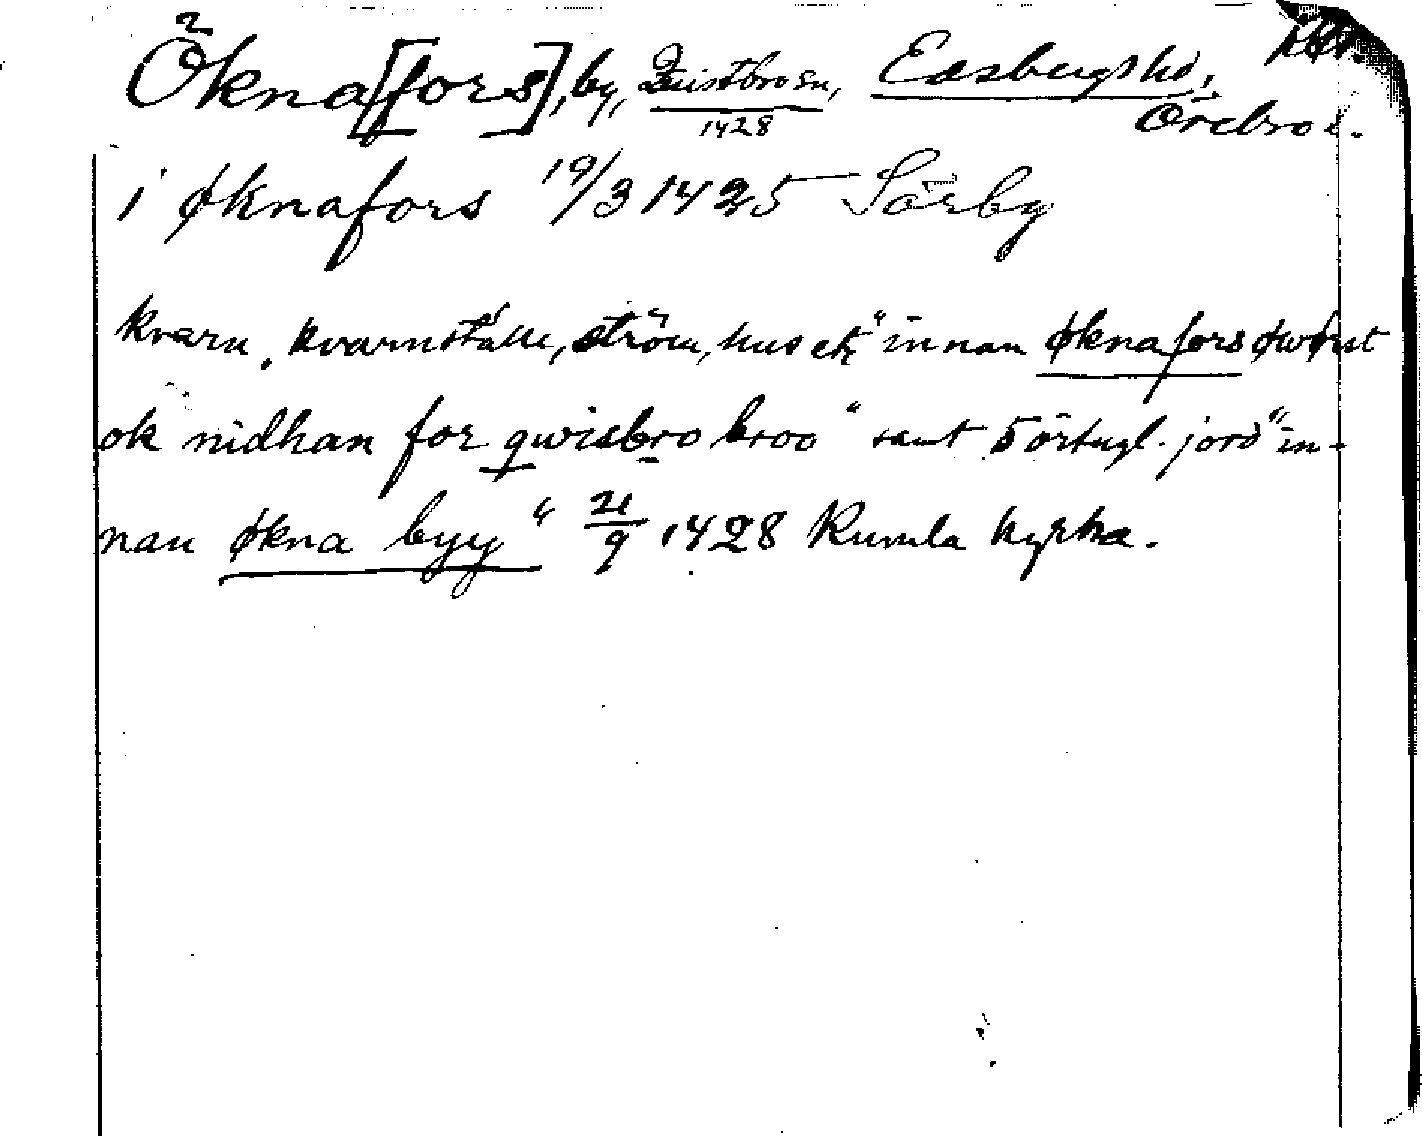 Ökna[fors], by, Quistbro sn, Edsbergs hd,
1428 Örebro l.
i øknafors 19/3 1425 Sörby
kvarn, kvarnställe, ström, hus etc "innan øknafors øwrst
ok nidhan for qwisbro broo" samt 5 örtugl. jord "in-
nan økna byy" 21/9 1428 Kumla kyrka.